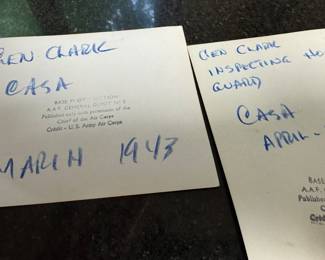 GEN CLARK
CASA
BASE PHOTO SECTION
A.A.F. GENERAL DEPOT No 5
Published only with permission of the
Chief of the Air Corps
Credit - U.S. Army Air Corps
MARCH 1943
GEN CLARK
INSPECTING
GUARD
CASA
APRIL -
BASE
A.A.F.
Published